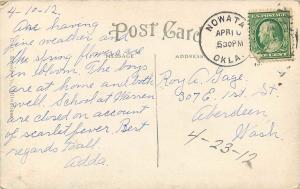 4-10-12
Are having
fine weather and
the strong flowers are
in bloom. The boys
are at home and both
well. School at Warren
are closed on account
of scarlet fever. Best
regards to all
Adda.
Post Card
MESSAGE
ADDRESS
NOWATA
APR 10
530PM
OKLA.
Roy A. Gage.
307 E. 1st. St.
Aberdeen
Wash.
4-23-12